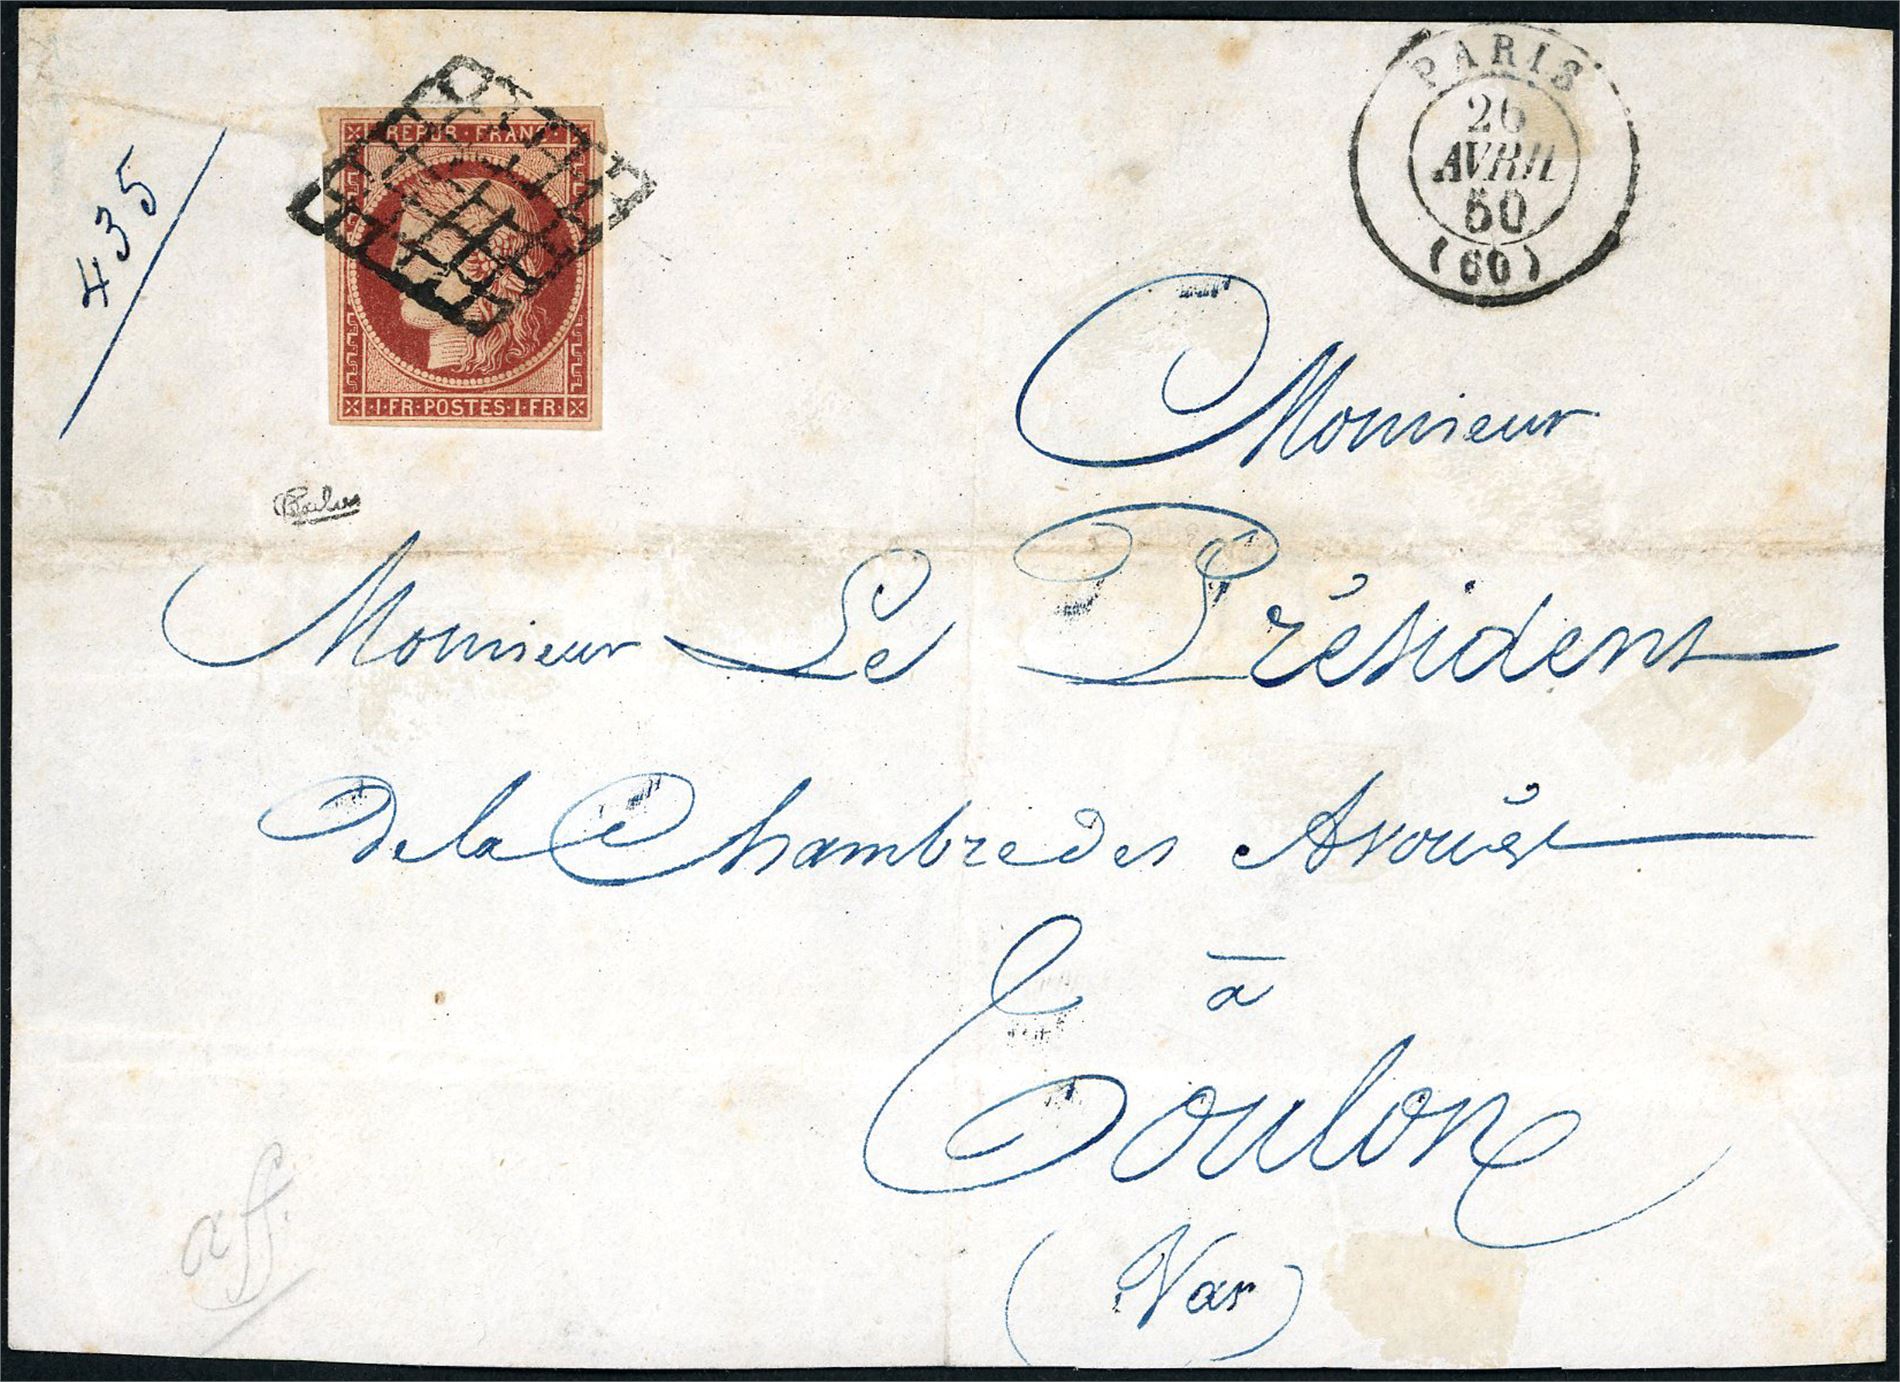 435
REPUB·FRANC·
1·FR·POSTES·1·FR·
PARIS
26
AVRIL
50
(60)
Monsieur
Monsieur Le Président
De la Chambre des Avoués
à
Toulon
(Var)
aff.